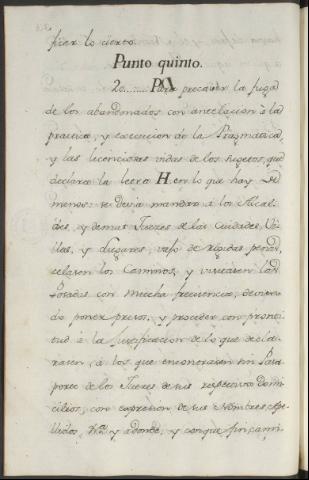 fiere lo cierto.
Punto quinto.
20...... Para precaber la fuga
de los abandonados con antelacion à la
practica, y execucion de la Pragmatica,
y las licenciosas vidas de los sugetos, que
declara la letra H. en lo que hay de
menos: se devia mandar à los Alcal-
des, y demas Juezes de las Ciudades, Vi-
llas, y Lugares, vajo de rigidas penas,
celasen los Caminos, y visitasen las
Posadas con mucha frecuencia, devien-
do poner presos, y proceder con pronti-
tud à la justificacion de lo que decla-
rasen, à los que encontrasen sin Pasa-
porte de los Juezes de sus respectivos Domi-
cilios, con expresion de sus Nombres, Ape-
llidos, y adonde, y conque fin cami-